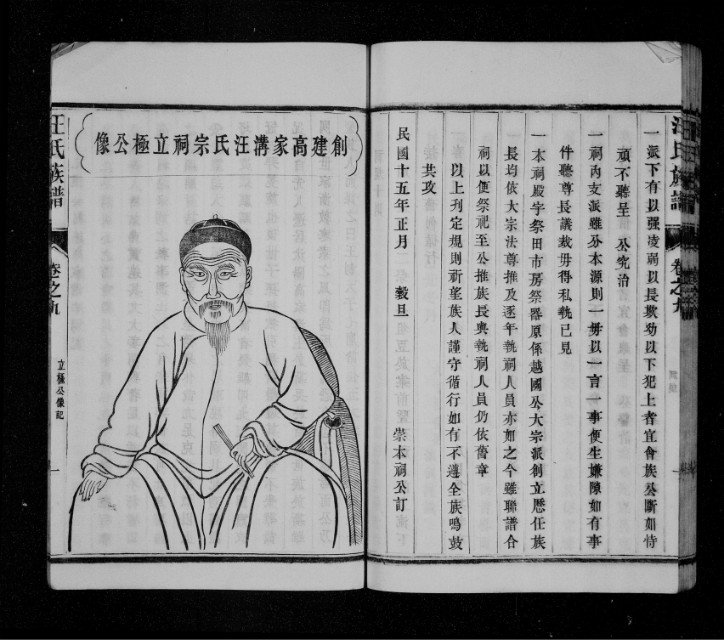 汪氏族譜
卷之九
一派下有以强凌弱以長欺幼以下犯上者宜會族公斷如恃
頑不聽呈 公究治
一祠内支派雖分本源則一毋以一言一事便生嫌隙如有事
件聽尊長議裁毋得私執已見
一本祠殿宇祭田市房祭器原係越國公大宗派創立歷任族
長均依大宗法尊推及逐年執祠人員亦如之今雖聯譜合
祠以便祭祀至公推族長與執祠人員仍依舊章
以上列定規則祈望族人謹守循行如有不遵全族鳴鼓
共攻
民國十五年正月 榖旦 崇本祠公訂
創建高家溝汪氏宗祠立極公像
汪氏族譜
卷之九
立極公像記
一